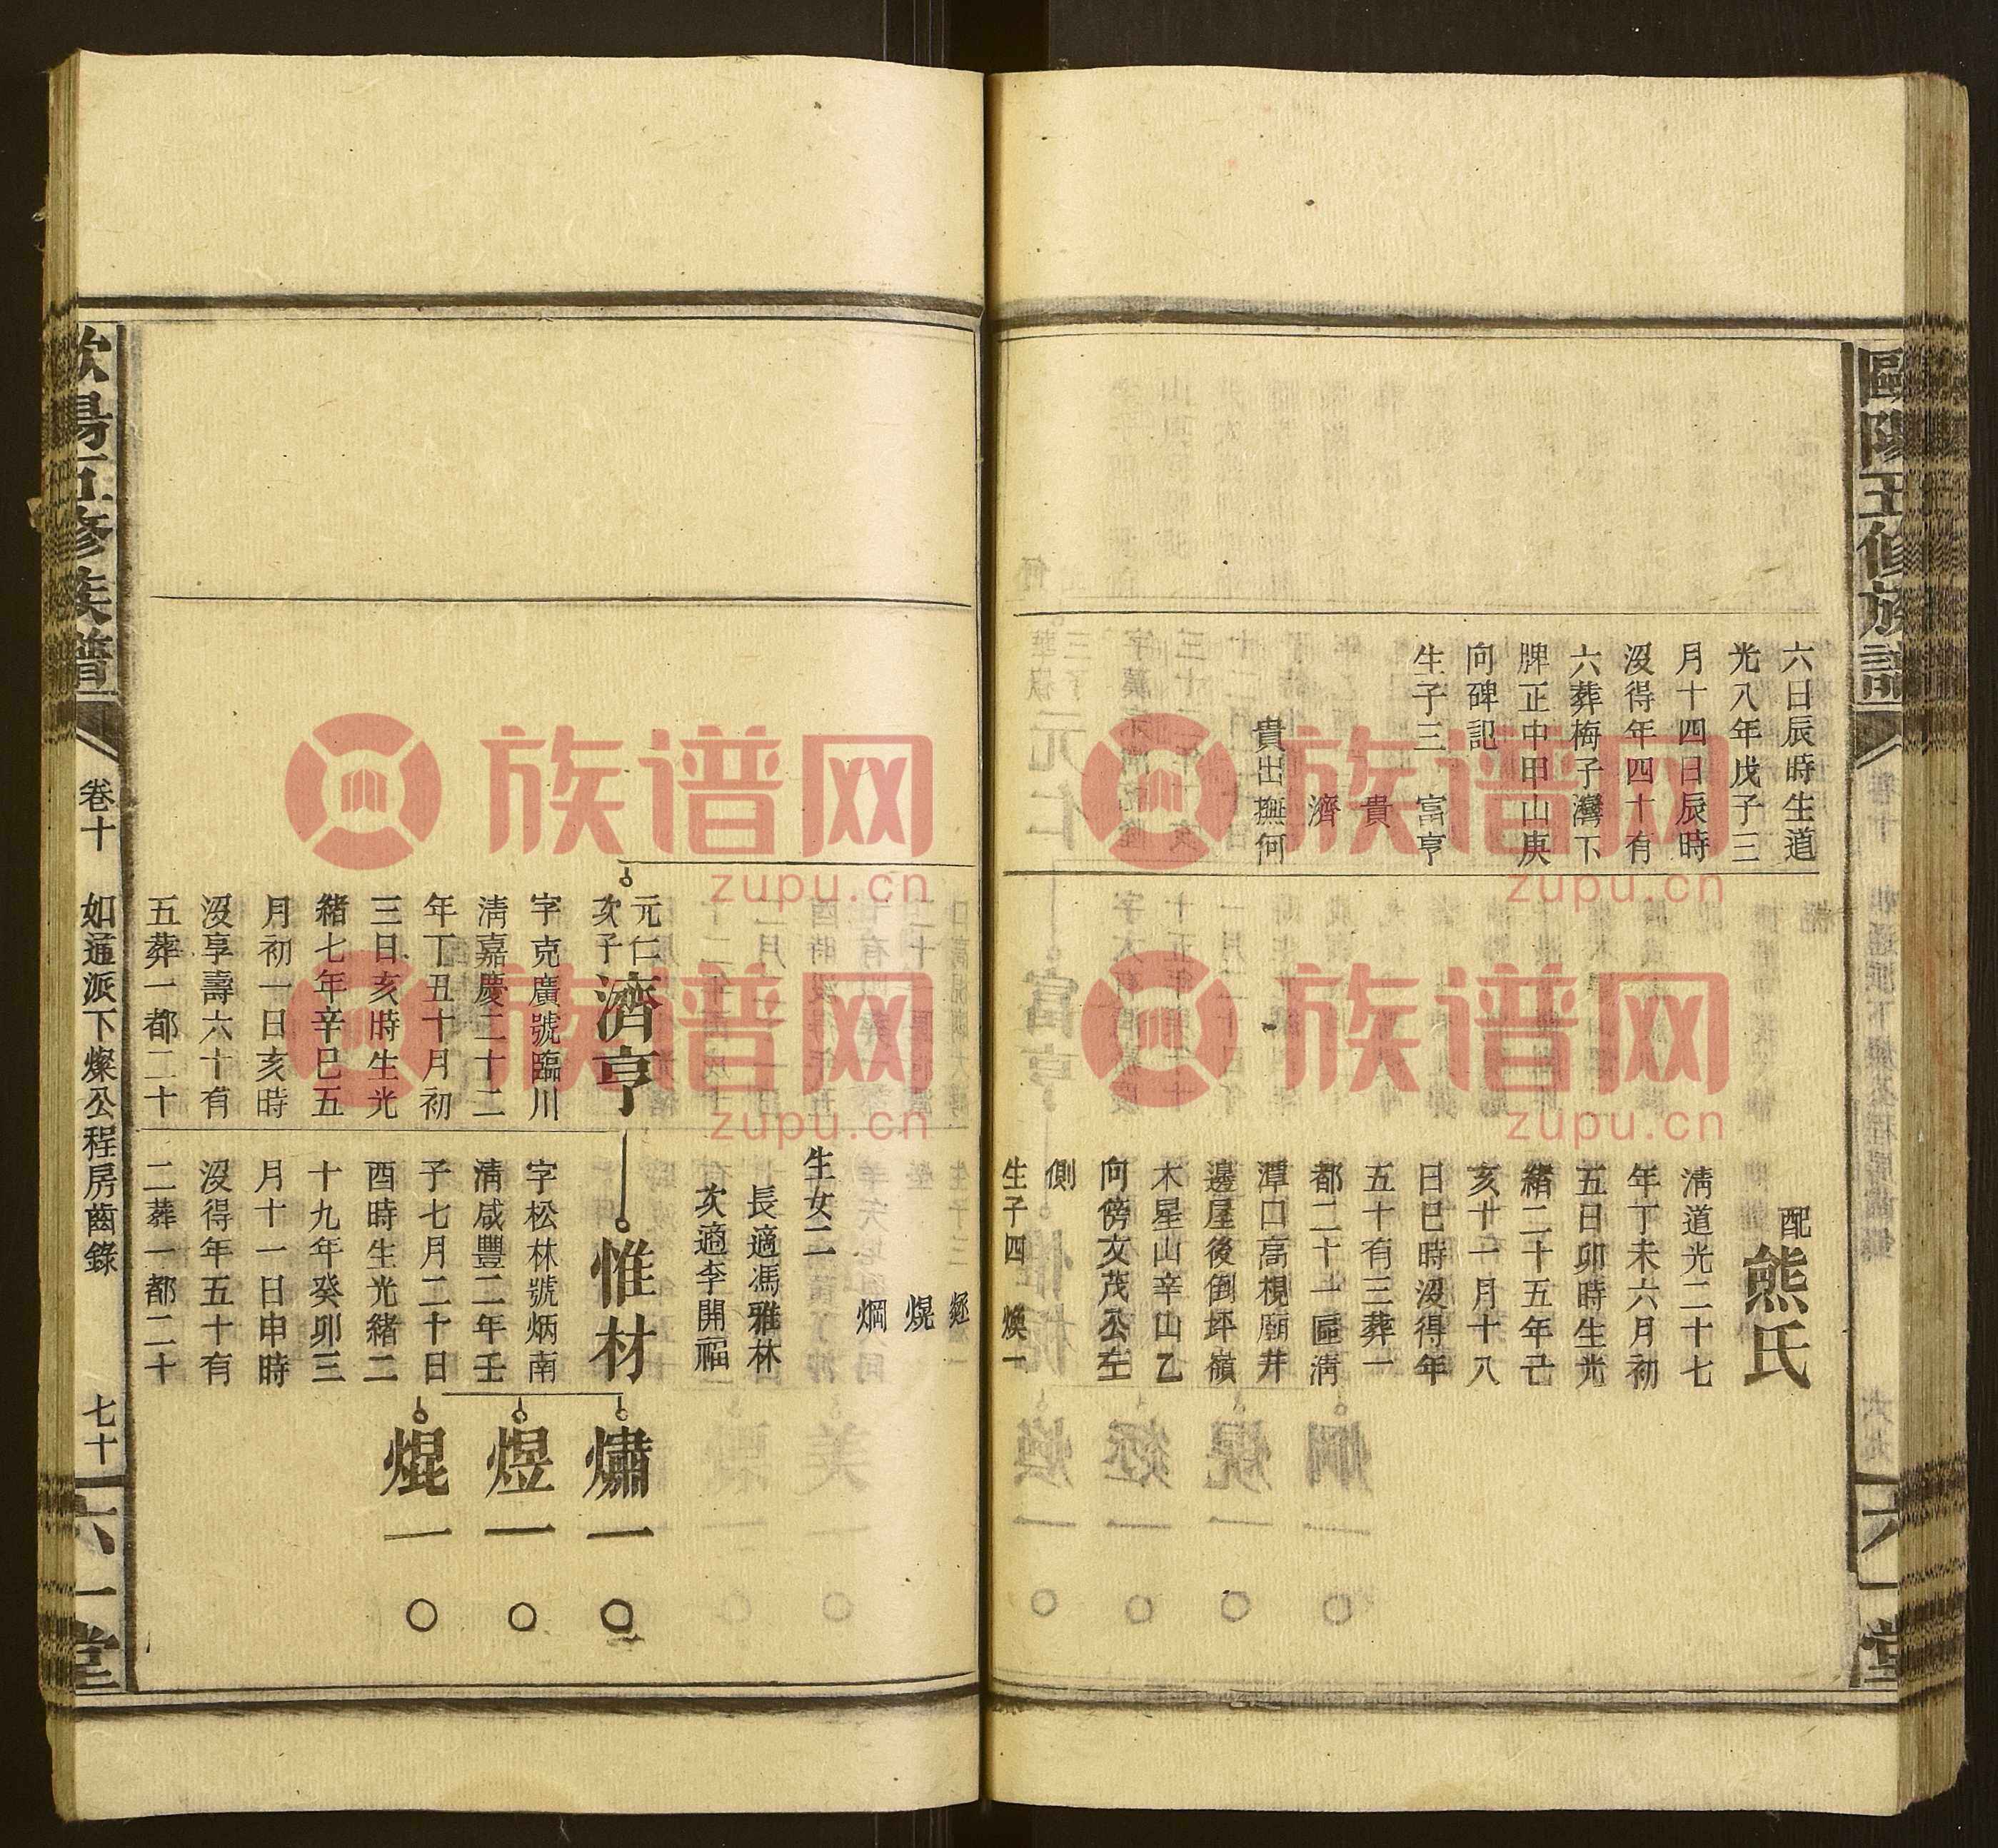 六日辰時生道
光八年戊子三
月十四日辰時
沒得年四十有
六葬梅子灣下
牌正中甲山庚
向碑記
生子三 富亨
貴
濟
貴出撫何
配熊氏
淸道光二十七
年丁未六月初
五日卯時生光
緒二十五年己
亥十一月十八
日巳時沒得年
五十有三葬一
都二十一區淸
潭口高梘廟井
邊屋後倒坪嶺
木星山辛山乙
向傍文茂公左
側
生子四 煥一
熞一
熀
烱
生女二
長適馮雅林
次適李開福
元仁
次子
濟亨
字克廣號臨川
淸嘉慶二十二
年丁丑十月初
三日亥時生光
緒七年辛巳五
月初一日亥時
沒享壽六十有
五葬一都二十
惟材
字松林號炳南
淸咸豐二年壬
子七月二十日
酉時生光緒二
十九年癸卯三
月十一日申時
沒得年五十有
二葬一都二十
熽一 〇
煜一 〇
焜一 〇
歐陽五修族譜
卷十
如通派下燦公程房齒錄
七十
六一堂
族谱网
zupu.cn
族谱网
zupu.cn
族谱网
zupu.cn
族谱网
zupu.cn